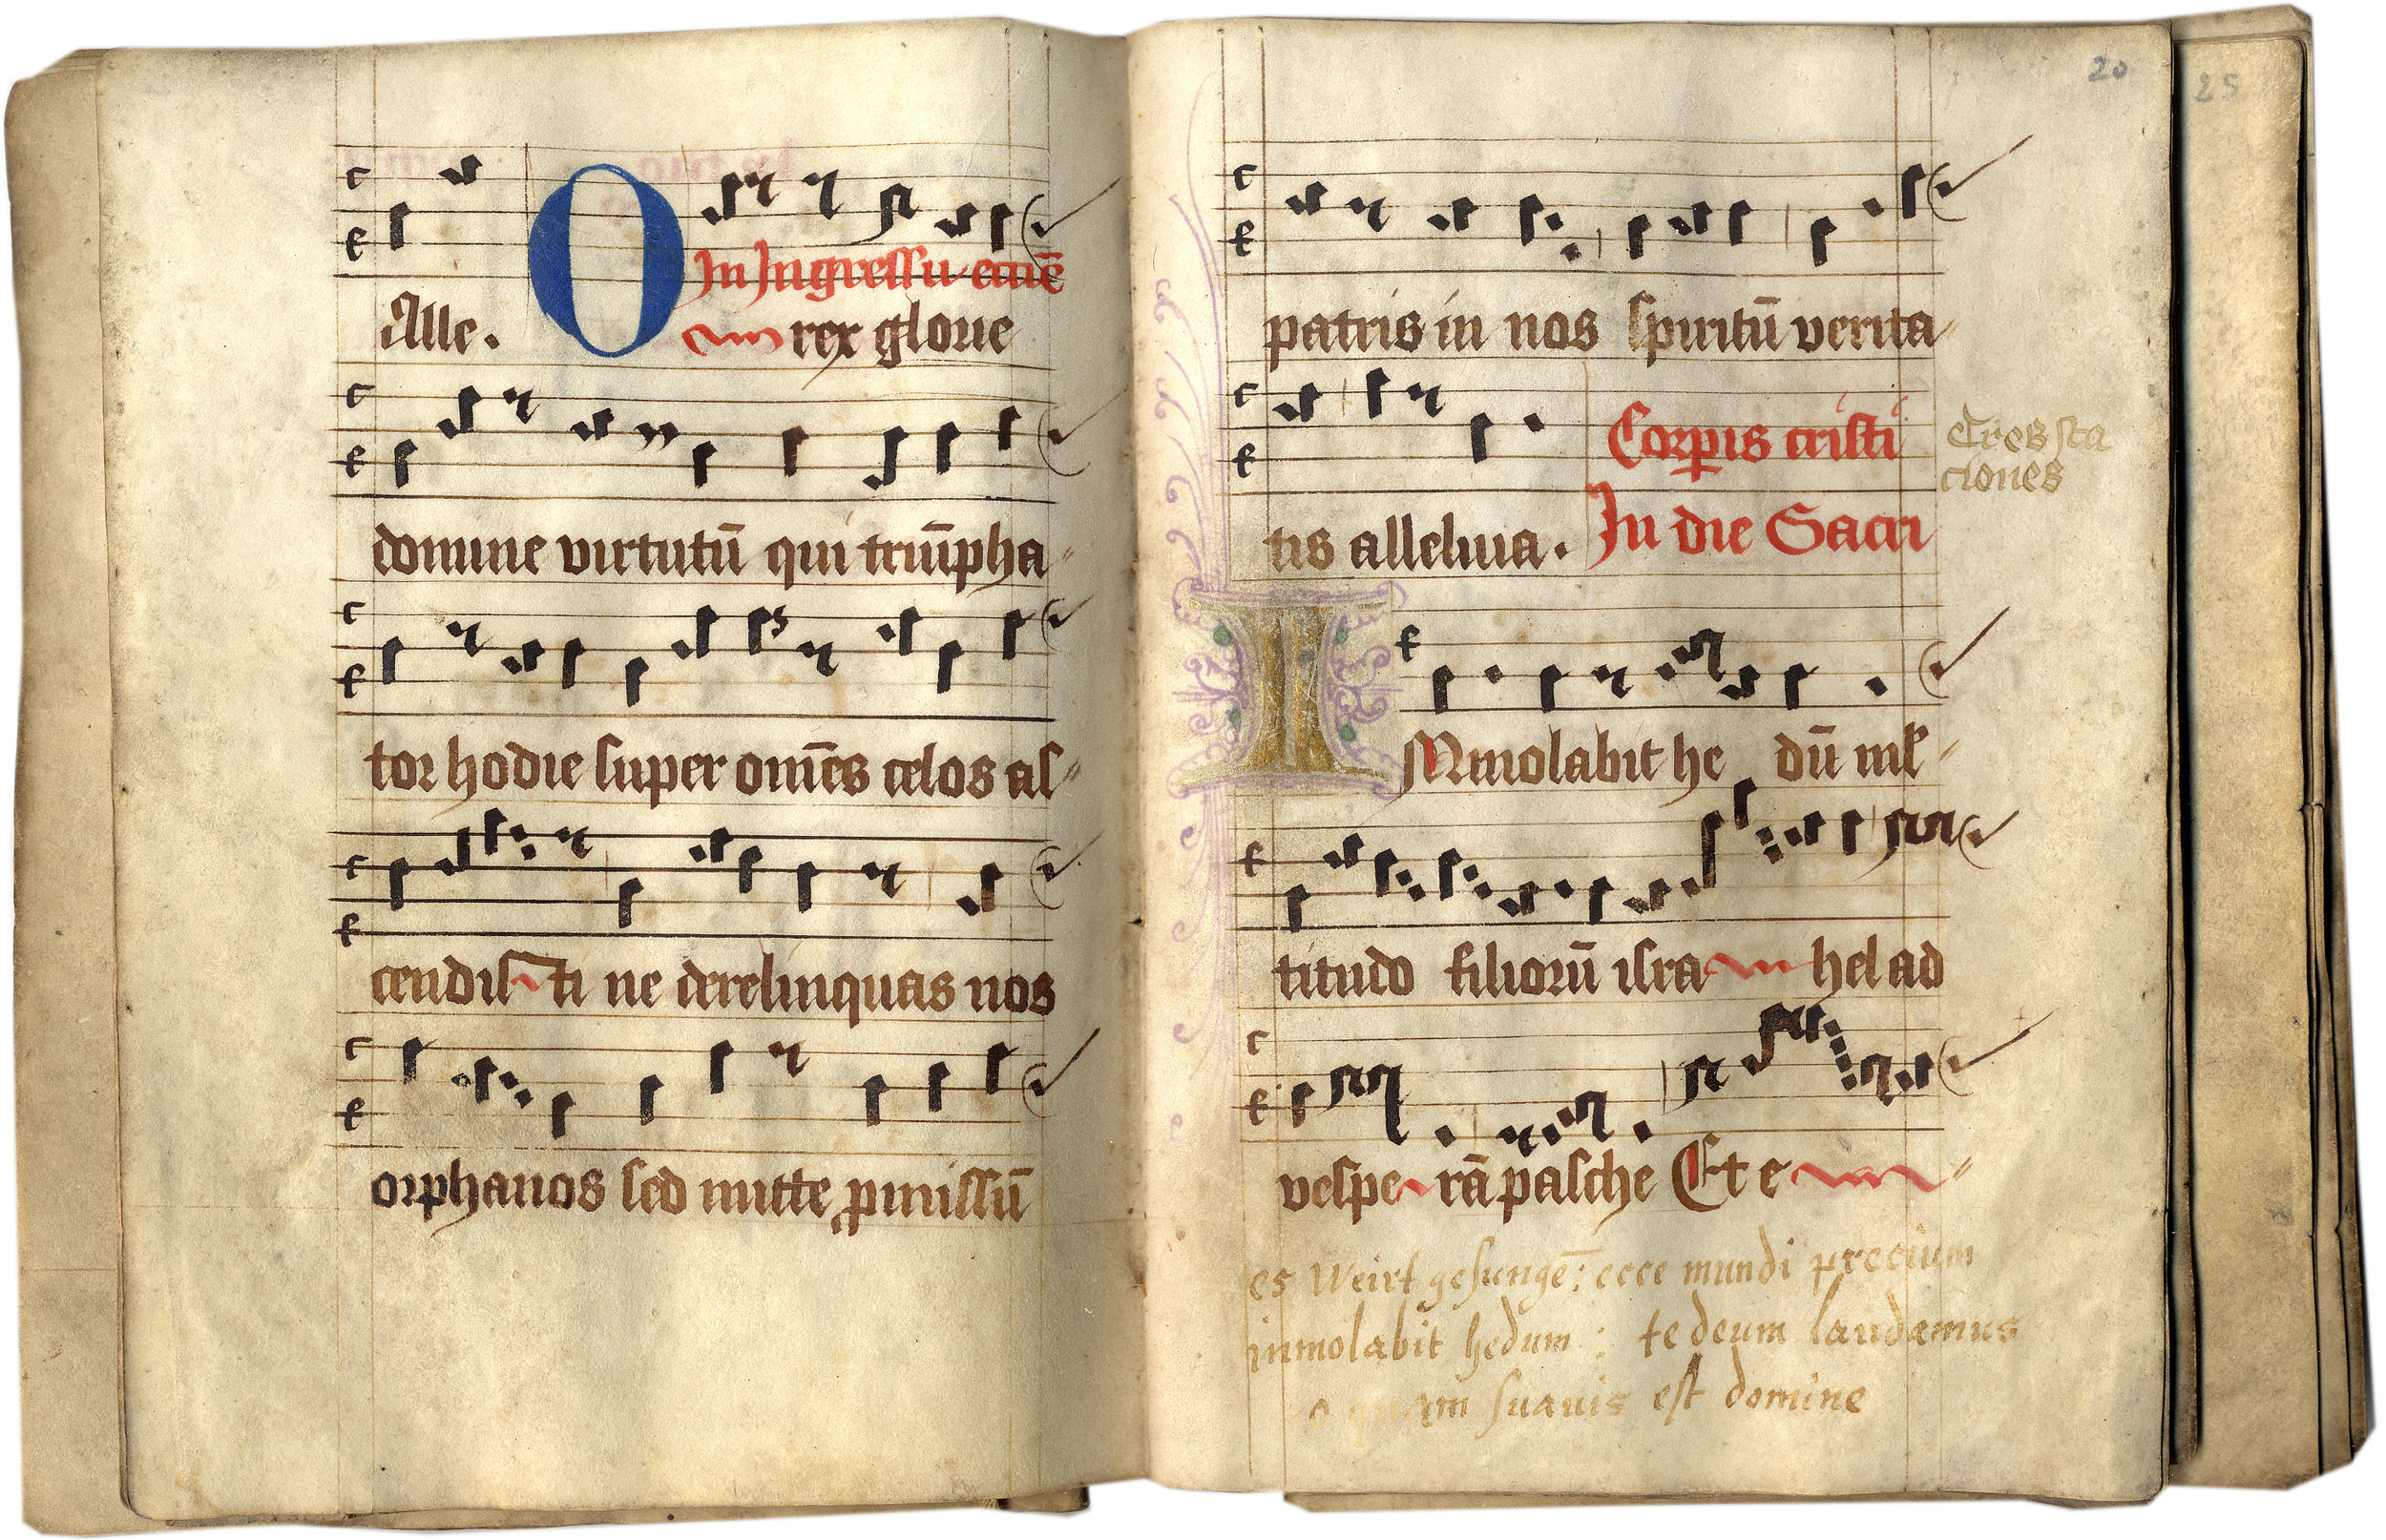 In Ingressu eccıē
Alle. O rex glorie
domine virtutū qui triūpha
tor hodie super om̄es celos as
cendis ti ne derelinquas nos
orphanos sed mitte ꝓmissū
20
25
patris in nos spiritū verita
tis alleluia.
Corpis cristi
In die Sacri
Tres sta
ciones
IMmolabit he dū ml
titudo filiorū isra hel ad
vespe rā pasche Et e
es Weirt gesungē: ecce mundi precium
inmolabit hedum: te deum laudamus
o quam suavis est domine